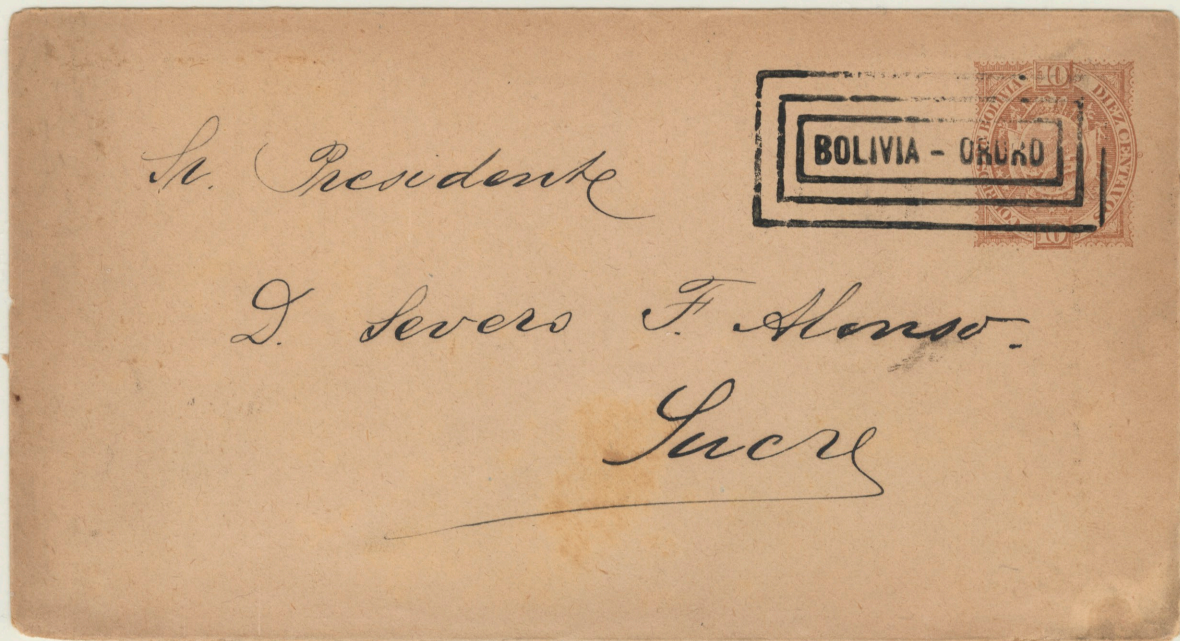 BOLIVIA - ORURO
10
CORREOS BOLIVIA
DIEZ CENTAVOS
10
Sr. Presidente
D. Severo F. Alonso.
Sucre